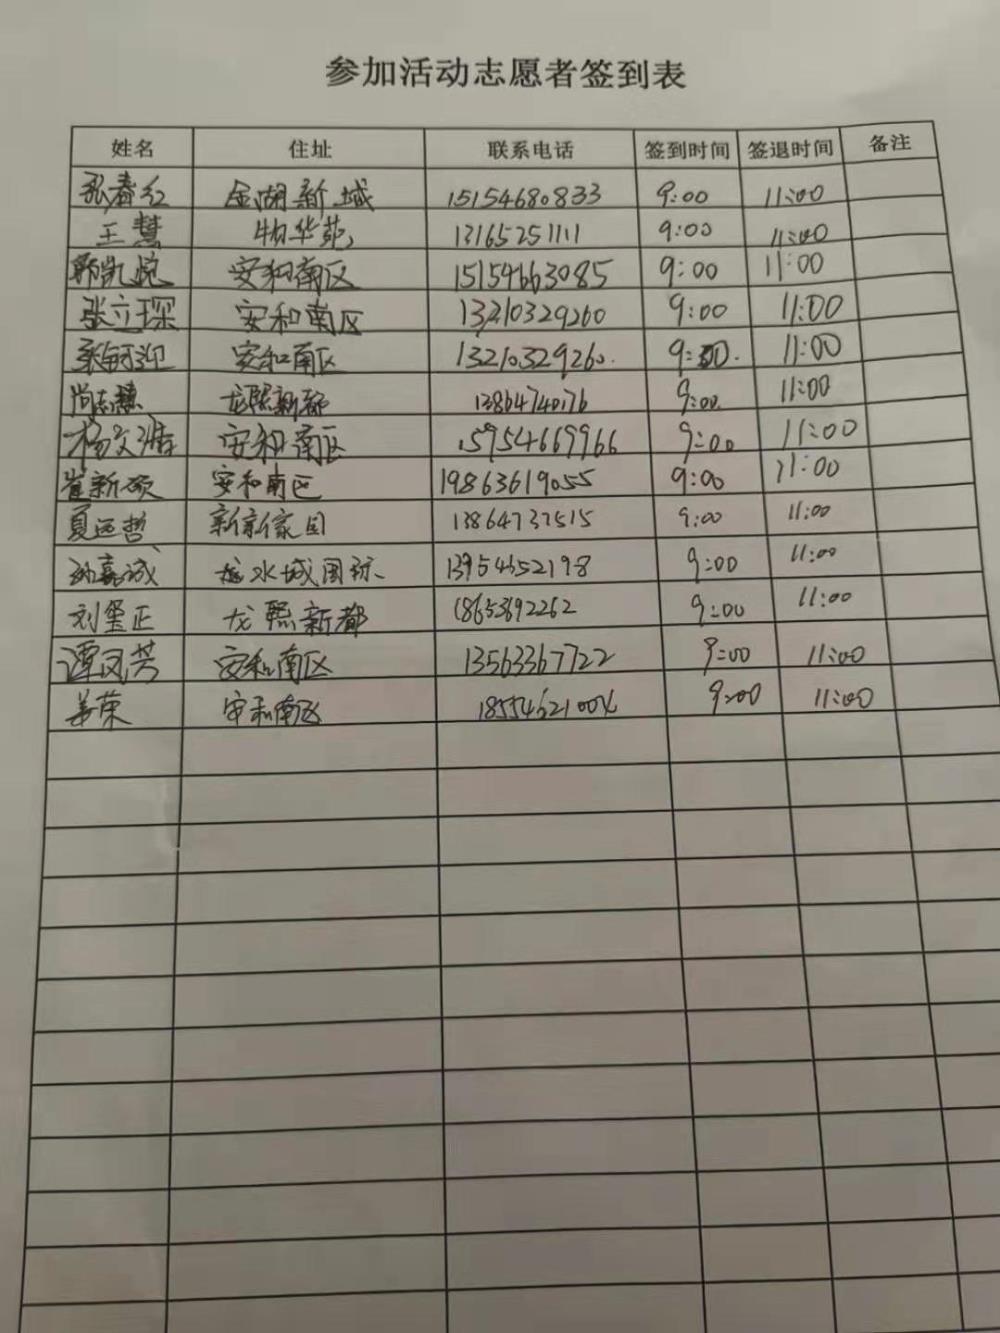 参加活动志愿者签到表
姓名 住址 联系电话 签到时间 签退时间 备注
张春红 金湖新城 15154680833 9:00 11:00
王慧 物华苑 13165251111 9:00 11:00
郭凯悦 安和南区 15154663085 9:00 11:00
张立琛 安和南区 13210329260 9:00 11:00
张钶迎 安和南区 13210329260. 9:00. 11:00
尚志慧 龙熙新都 13864740176 9:00. 11:00
杨文浩 安和南区 15954669966 9:00 11:00
崔新硕 安和南区 19863619055 9:00 11:00
夏运哲 新新家园 13864737515 9:00 11:00
嘉诚 水城国际 13954652198 9:00 11:00
刘玺正 龙熙新都 18653692262 9:00 11:00
谭凤芳 安和南区 13563367722 9:00 11:00
姜荣 安和南区 9:00 11:00